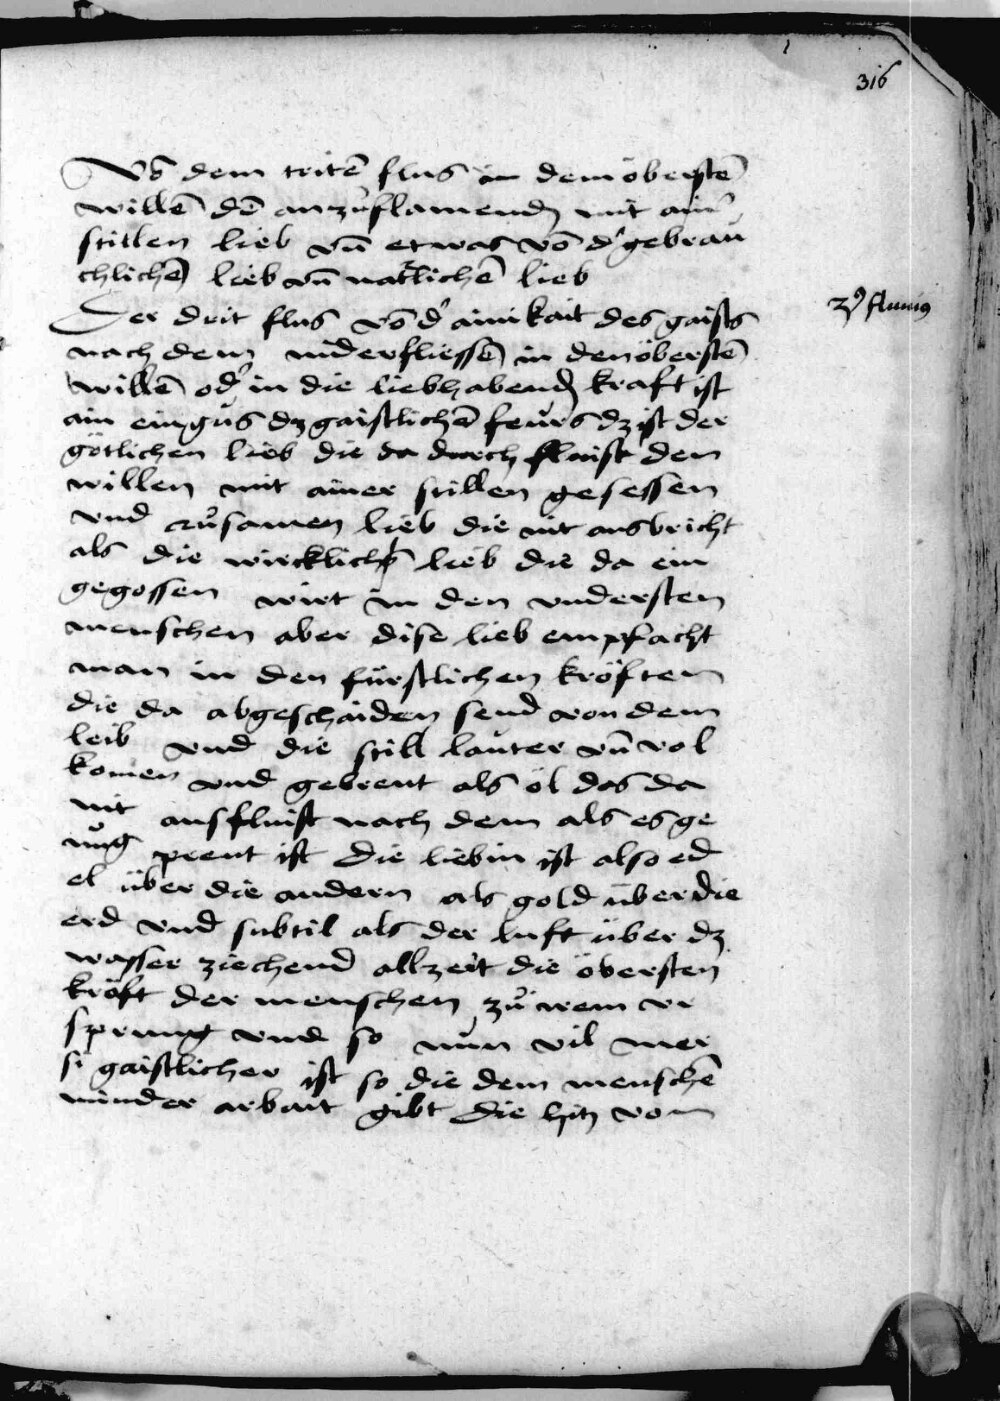 316
Vō dem tritē flus in dem öberstē
willē dē anzuflamend mit ainr
stillen lieb vn̄ etwas vō dr gebrau
chlichē lieb vn̄ natrlichē lieb
Der drit flus vō dr ainikait des gaists
3⁹ fluuius
nach dem niderfliessē in den öberstē
willē odr in die liebhabend kraft ist
ain eingus dz gaistlichē feurs dz ist der
götlichen lieb die da durch flaist den
willen mit ainer stillen gesessen
vnd rusamen lieb die nit ausbricht
als die wircklich lieb die da ein
gegossen wirt in den vndersten
menschen aber dise lieb empfacht
man in den fürstlichen kröften
die da abgeschaiden send von dem
leib vnd die still lauter vn̄ vol
komen vnd gebrent als öl das da
nit ausfluist nach dem als es ge
nug prent ist Die liebin ist also ed
el über die andern als gold über die
erd vnd subtil als der luft über dz
wasser ziechend allzeit die öbersten
kröft der menschen zu irem vr
sprung vnd so nun vil mer
si gaistlicher ist so die dem menschē
minder arbait gibt Die hitz vom